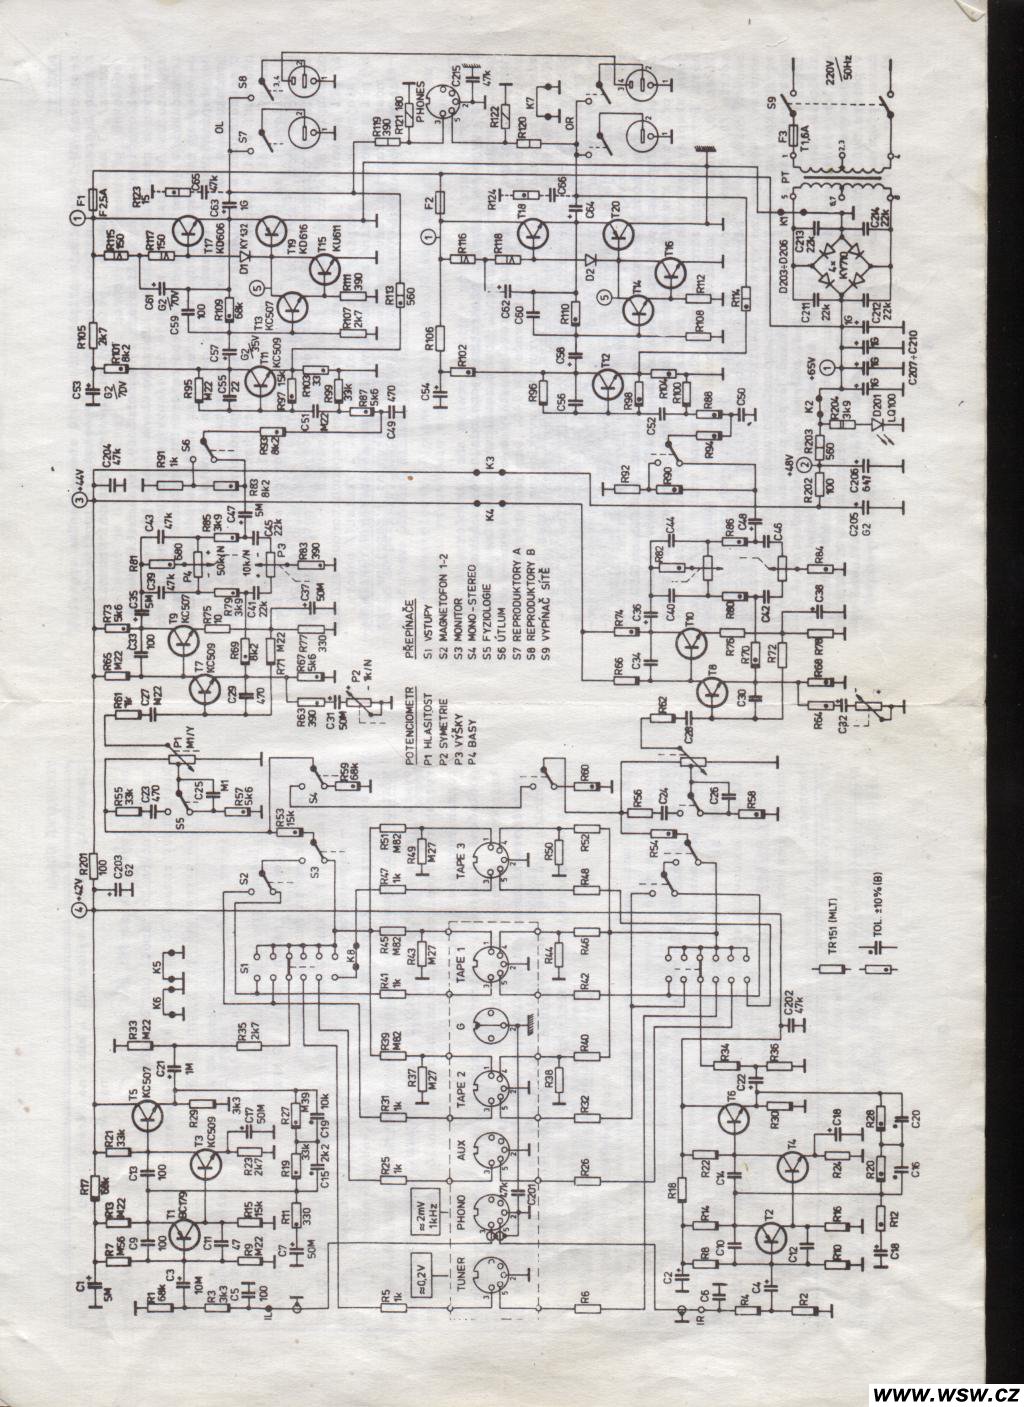 POTENCIOMETR
P1 HLASITOST
P2 SYMETRIE
P3 VÝŠKY
P4 BASY
PŘEPÍNAČE
S1 VSTUPY
S2 MAGNETOFON 1-2
S3 MONITOR
S4 MONO-STEREO
S5 FYZIOLOGIE
S6 ÚTLUM
S7 REPRODUKTORY A
S8 REPRODUKTORY B
S9 VYPÍNAČ SÍTĚ
TUNER
≈0,2V
PHONO
≈2mV
1kHz
AUX
TAPE 2
G
TAPE 1
TAPE 3
PHONES
TR151 (MLT)
TOL. ±10% (B)
220V
50Hz
S9
F3
T1,6A
PT
K1
D203÷D206
4×
KY710
C213
22k
C214
22k
C211
22k
C212
22k
C207÷C210
1G
+65V
K2
R204
3k9
D201
LQ100
R203
560
+48V
R202
100
C206
C205
G2
F1
F2,5A
R115
150
R117
150
T17
KD606
D1
KY132
T19
KD616
T15
KU611
C61
G2
70V
C59
100
R109
68k
T13
KC507
R111
390
R107
2k7
R113
560
R123
15
C65
47k
C63
1G
OL
S7
S8
R119
390
R121
180
C215
47k
R122
K7
R120
OR
R105
2k7
R101
8k2
C53
G2
70V
R95
M22
C55
22
C57
G2
35V
T11
KC509
R97
15k
R103
33
R99
33k
C51
M22
R87
5k6
C49
470
R93
8k2
S6
C204
47k
R91
1k
R83
8k2
+44V
K3
K4
C47
5M
C43
47k
R85
3k9
C45
22k
R81
680
P4
50k/N
10k/N
P3
C39
47k
R79
3k9
C41
22k
R83
390
C37
50M
R73
5k6
C35
5M
C33
100
T9
KC507
R75
10
R69
8k2
R71
M22
R77
330
R65
M22
T7
KC509
C29
470
R67
5k6
R61
1k
C27
M22
R63
390
C31
50M
P2
1k/N
P1
M1/Y
R55
33k
C23
470
S5
C25
M1
R57
5k6
R53
15k
S4
R59
68k
S3
S2
R201
100
C203
G2
+42V
S1
K8
K5
K6
R51
M82
R49
M27
R47
1k
R45
M82
R43
M27
R41
1k
R39
M82
R37
M27
R31
1k
R25
1k
R5
1k
C201
47k
R33
M22
C21
1M
R35
2k7
T5
KC507
R29
3k3
R27
M39
C19
10k
C17
50M
R21
33k
T3
KC509
C13
100
R23
2k7
R19
33k
C15
2k2
R17
68k
R13
M22
T1
BC179
R15
15k
R11
330
R7
M56
C9
100
C11
47
R9
M22
C7
50M
C1
5M
C3
10M
R1
68k
R3
3k3
C5
100
IL
F2
R116
R118
T18
R124
C66
C64
T20
D2
T16
T14
C62
C60
R110
R112
R108
R114
R106
R102
C54
C58
T12
R96
C56
R98
R104
R100
C52
R88
C50
R94
R92
R90
C48
C44
R86
C46
R82
R84
C40
R80
C42
C38
R74
C36
T10
R76
R70
R72
R78
R66
C34
T8
C30
R68
R62
C28
R64
C32
R60
R56
C24
C26
R58
R54
R50
R52
R48
R46
R44
R42
R40
R38
R32
R26
R6
C202
47k
R34
C22
R36
T6
R30
R28
C20
C18
R22
C14
T4
R24
R20
C16
R18
R14
T2
R16
R12
R8
C10
C12
R10
C18
C2
C4
C6
IR
R4
R2
www.wsw.cz